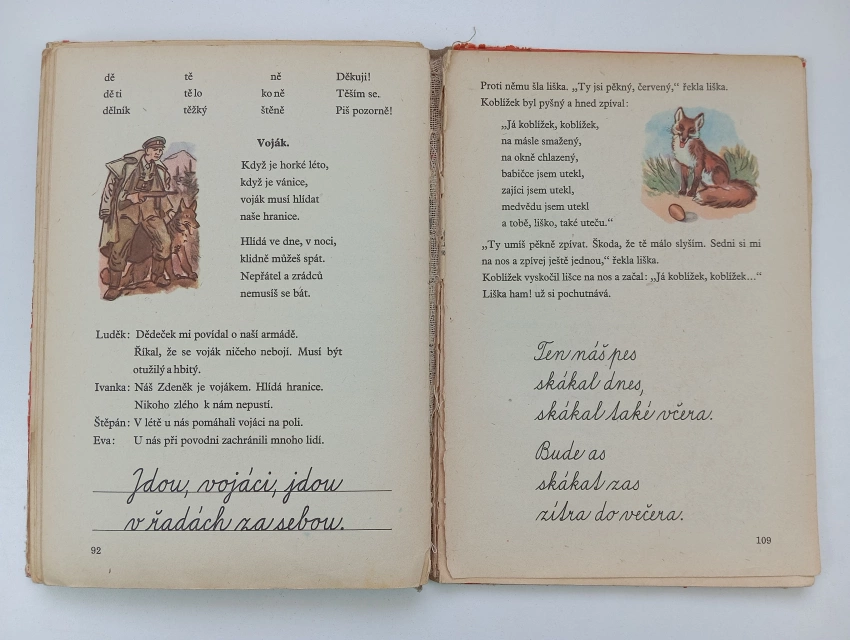 dě tě ně Děkuji!
dě ti tě lo ko ně Těším se.
dělník těžký štěně Piš pozorně!
Voják.
Když je horké léto,
když je vánice,
voják musí hlídat
naše hranice.
Hlídá ve dne, v noci,
klidně můžeš spát.
Nepřátel a zrádců
nemusíš se bát.
Luděk: Dědeček mi povídal o naší armádě.
Říkal, že se voják ničeho nebojí. Musí být
otužilý a hbitý.
Ivanka: Náš Zdeněk je vojákem. Hlídá hranice.
Nikoho zlého k nám nepustí.
Štěpán: V létě u nás pomáhali vojáci na poli.
Eva: U nás při povodni zachránili mnoho lidí.
Jdou, vojáci, jdou
v řadách za sebou.
92
Proti němu šla liška. „Ty jsi pěkný, červený,“ řekla liška.
Koblížek byl pyšný a hned zpíval:
„Já koblížek, koblížek,
na másle smažený,
na okně chlazený,
babičce jsem utekl,
zajíci jsem utekl,
medvědu jsem utekl
a tobě, liško, také uteču.“
„Ty umíš pěkně zpívat. Škoda, že tě málo slyším. Sedni si mi
na nos a zpívej ještě jednou,“ řekla liška.
Koblížek vyskočil lišce na nos a začal: „Já koblížek, koblížek...“
Liška ham! už si pochutnává.
Ten náš pes
skákal dnes,
skákal také včera.
Bude as
skákat zas
zítra do večera.
109